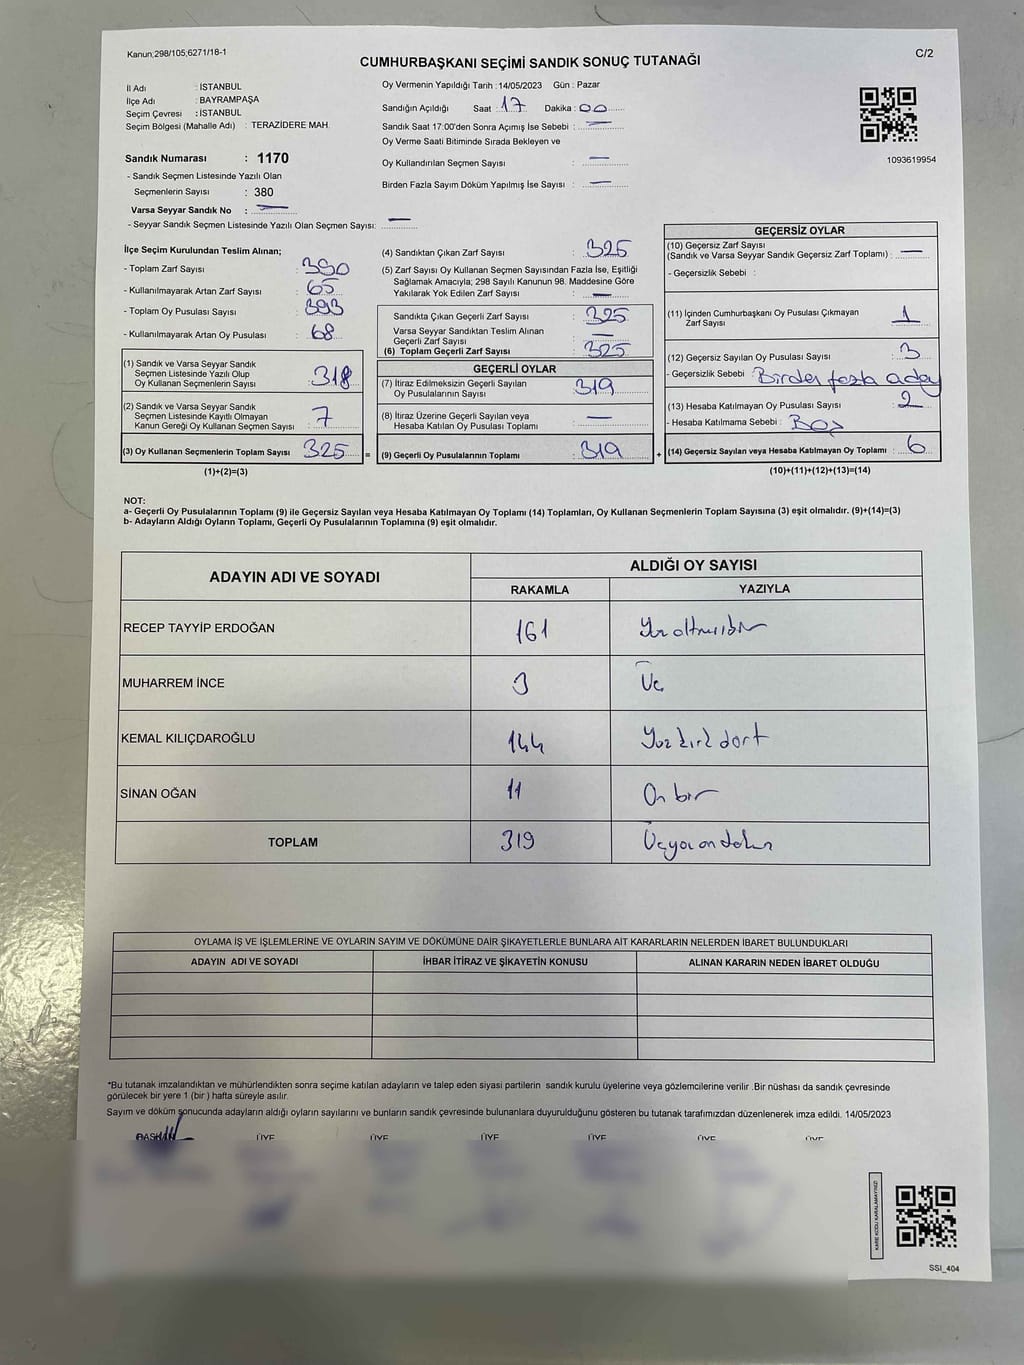 Kanun;298/105;6271/18-1
C/2
CUMHURBAŞKANI SEÇİMİ SANDIK SONUÇ TUTANAĞI
İl Adı : İSTANBUL
İlçe Adı : BAYRAMPAŞA
Seçim Çevresi : İSTANBUL
Seçim Bölgesi (Mahalle Adı) : TERAZİDERE MAH.
Sandık Numarası : 1170
- Sandık Seçmen Listesinde Yazılı Olan
Seçmenlerin Sayısı : 380
Varsa Seyyar Sandık No : —
- Seyyar Sandık Seçmen Listesinde Yazılı Olan Seçmen Sayısı: —
Oy Vermenin Yapıldığı Tarih : 14/05/2023 Gün : Pazar
Sandığın Açıldığı Saat : 17 Dakika : 00
Sandık Saat 17:00'den Sonra Açımış İse Sebebi : —
Oy Verme Saati Bitiminde Sırada Bekleyen ve
Oy Kullandırılan Seçmen Sayısı : —
Birden Fazla Sayım Döküm Yapılmış İse Sayısı : —
1093619954
İlçe Seçim Kurulundan Teslim Alınan;
- Toplam Zarf Sayısı : 390
- Kullanılmayarak Artan Zarf Sayısı : 65
- Toplam Oy Pusulası Sayısı : 393
- Kullanılmayarak Artan Oy Pusulası : 68
(1) Sandık ve Varsa Seyyar Sandık
Seçmen Listesinde Yazılı Olup
Oy Kullanan Seçmenlerin Sayısı : 318
(2) Sandık ve Varsa Seyyar Sandık
Seçmen Listesinde Kayıtlı Olmayan
Kanun Gereği Oy Kullanan Seçmen Sayısı : 7
(3) Oy Kullanan Seçmenlerin Toplam Sayısı 325 =
(1)+(2)=(3)
(4) Sandıktan Çıkan Zarf Sayısı : 325
(5) Zarf Sayısı Oy Kullanan Seçmen Sayısından Fazla İse, Eşitliği
Sağlamak Amacıyla; 298 Sayılı Kanunun 98. Maddesine Göre
Yakılarak Yok Edilen Zarf Sayısı : —
Sandıkta Çıkan Geçerli Zarf Sayısı : 325
Varsa Seyyar Sandıktan Teslim Alınan
Geçerli Zarf Sayısı : —
(6) Toplam Geçerli Zarf Sayısı : 325
GEÇERLİ OYLAR
(7) İtiraz Edilmeksizin Geçerli Sayılan
Oy Pusulalarının Sayısı : 319
(8) İtiraz Üzerine Geçerli Sayılan veya
Hesaba Katılan Oy Pusulası Toplamı : —
(9) Geçerli Oy Pusulalarının Toplamı : 319 +
GEÇERSİZ OYLAR
(10) Geçersiz Zarf Sayısı
(Sandık ve Varsa Seyyar Sandık Geçersiz Zarf Toplamı) : —
- Geçersizlik Sebebi :
(11) İçinden Cumhurbaşkanı Oy Pusulası Çıkmayan
Zarf Sayısı : 1
(12) Geçersiz Sayılan Oy Pusulası Sayısı : 3
- Geçersizlik Sebebi : Birden fazla aday
(13) Hesaba Katılmayan Oy Pusulası Sayısı : 2
- Hesaba Katılmama Sebebi : Boş
(14) Geçersiz Sayılan veya Hesaba Katılmayan Oy Toplamı : 6
(10)+(11)+(12)+(13)=(14)
NOT:
a- Geçerli Oy Pusulalarının Toplamı (9) ile Geçersiz Sayılan veya Hesaba Katılmayan Oy Toplamı (14) Toplamları, Oy Kullanan Seçmenlerin Toplam Sayısına (3) eşit olmalıdır. (9)+(14)=(3)
b- Adayların Aldığı Oyların Toplamı, Geçerli Oy Pusulalarının Toplamına (9) eşit olmalıdır.
ADAYIN ADI VE SOYADI ALDIĞI OY SAYISI
RAKAMLA YAZIYLA
RECEP TAYYİP ERDOĞAN 161 Yüz altmışbir
MUHARREM İNCE 3 Üç
KEMAL KILIÇDAROĞLU 144 Yüz kırk dört
SİNAN OĞAN 11 On bir
TOPLAM 319 Üçyüz on dokuz
OYLAMA İŞ VE İŞLEMLERİNE VE OYLARIN SAYIM VE DÖKÜMÜNE DAİR ŞİKAYETLERLE BUNLARA AİT KARARLARIN NELERDEN İBARET BULUNDUKLARI
ADAYIN ADI VE SOYADI İHBAR İTİRAZ VE ŞİKAYETİN KONUSU ALINAN KARARIN NEDEN İBARET OLDUĞU
*Bu tutanak imzalandıktan ve mühürlendikten sonra seçime katılan adayların ve talep eden siyasi partilerin sandık kurulu üyelerine veya gözlemcilerine verilir .Bir nüshası da sandık çevresinde
görülecek bir yere 1 (bir ) hafta süreyle asılır.
Sayım ve döküm sonucunda adayların aldığı oyların sayılarını ve bunların sandık çevresinde bulunanlara duyurulduğunu gösteren bu tutanak tarafımızdan düzenlenerek imza edildi. 14/05/2023
BAŞKAN ÜYE ÜYE ÜYE ÜYE ÜYE ÜYE
KARE KODU KARALAMAYINIZ!
SSI_404